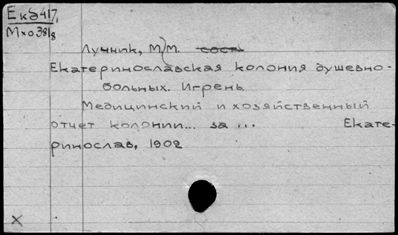 Ек 2417,
Мхо 38/8
Лучник, М. М. сост
Екатеринославская колония душевно-
больных. Игрень
Медицинский и хозяйственный
отчет колонии... за ... Екате-
ринослав, 1902
X